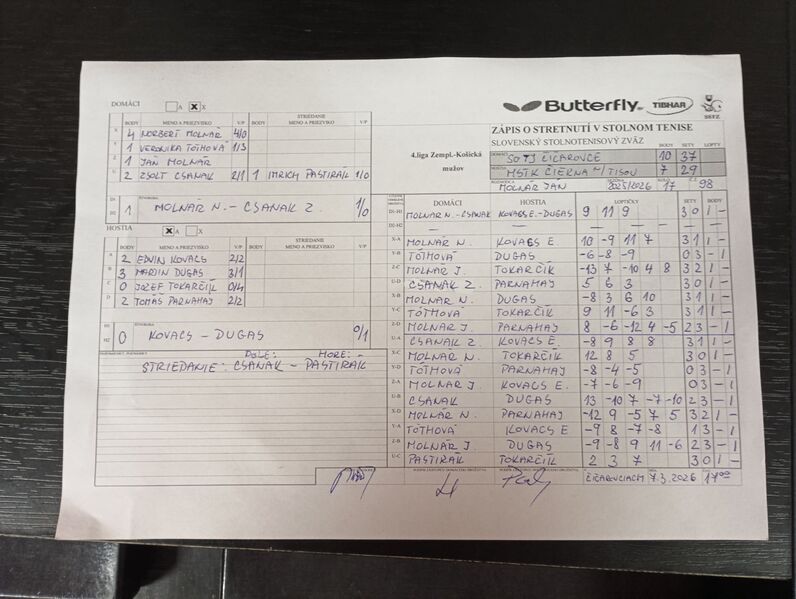 DOMÁCI A X X
Butterfly TIBHAR SSTZ
BODY MENO A PRIEZVISKO V/P BODY STRIEDANIE MENO A PRIEZVISKO V/P
X 4 NORBERT MOLNÁR 4/0
Y 1 VERONIKA TÓTHOVÁ 1/3
Z 1 JÁN MOLNÁR
U 2 ZSOLT CSANAK 2/1 1 IMRICH PASTIRÁK 1/0
D1 D2 1 MOLNÁR N. - CSANAK Z. 1/0
HOSTIA X A X
BODY MENO A PRIEZVISKO V/P BODY STRIEDANIE MENO A PRIEZVISKO V/P
A 2 EDVIN KOVACS 2/2
B 3 MARTIN DUGAS 3/1
C 0 JOZEF TOKARČÍK 0/4
D 2 TOMÁŠ PARNAHAJ 2/2
H1 H2 0 KOVACS - DUGAS 0/1
DOLE: HORE:
STRIEDANIE: CSANAK - PASTIRÁK
4.liga Zempl.-Košická
mužov
ZÁPIS O STRETNUTÍ V STOLNOM TENISE
SLOVENSKÝ STOLNOTENISOVÝ ZVÄZ
BODY SETY LOPTY
SOTJ ČIČAROVCE 10 37
MSTK ČIERNA N/TISOU 7 29
MOLNÁR JÁN 2025/2026 17 98
DOMÁCI HOSTIA LOPTIČKY SETY BODY
D1-H1 MOLNÁR N. - CSANAK KOVACS E. - DUGAS 9 11 9 3 0 1 -
D2-H2 — — — — — — — —
X-A MOLNÁR N. KOVACS E. 10 -9 11 7 3 1 1 -
Y-B TÓTHOVÁ DUGAS -6 -8 -9 0 3 - 1
Z-C MOLNÁR J. TOKARČÍK -13 7 -10 4 8 3 2 1 -
U-D CSANAK Z. PARNAHAJ 5 6 3 3 0 1 -
X-B MOLNÁR N. DUGAS -8 3 6 10 3 1 1 -
Y-C TÓTHOVÁ TOKARČÍK 9 11 -6 3 3 1 1 -
Z-D MOLNÁR J. PARNAHAJ 8 -6 -12 4 -5 2 3 - 1
U-A CSANAK Z. KOVACS E. -8 9 8 8 3 1 1 -
X-C MOLNÁR N. TOKARČÍK 12 8 5 3 0 1 -
Y-D TÓTHOVÁ PARNAHAJ -8 -4 -5 0 3 - 1
Z-A MOLNÁR J. KOVACS E. -7 -6 -9 0 3 - 1
U-B CSANAK DUGAS 13 -10 7 -7 -10 2 3 - 1
X-D MOLNÁR N. PARNAHAJ -12 9 -5 7 5 3 2 1 -
Y-A TÓTHOVÁ KOVACS E -9 8 -7 -8 1 3 - 1
Z-B MOLNÁR J. DUGAS -9 -8 9 11 -6 2 3 - 1
U-C PASTIRÁK TOKARČÍK 2 3 7 3 0 1 -
ČIČAROVCIACH 7.3.2026 17 00